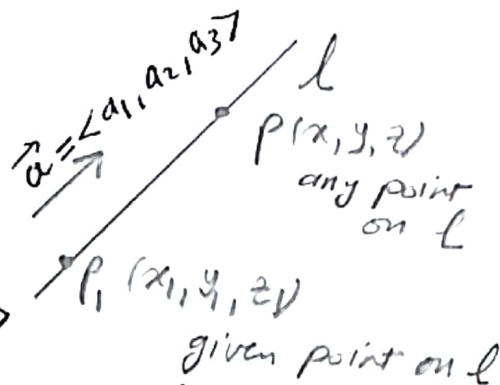 a⃗ = <a₁, a₂, a₃>
l
P(x, y, z)
any point
on l
P₁ (x₁, y₁, z₁)
given point on l